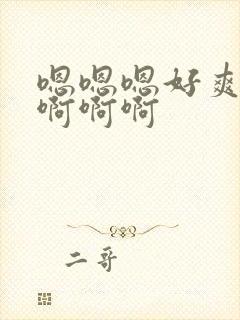 嗯嗯嗯好爽
啊啊啊
二哥